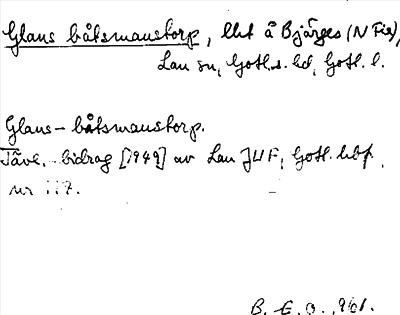 Glans båtsmanstorp, lht å Bjärges (N Fie),
Lau sn, Gotl. s. hd, Gotl. l.
Glans-båtsmanstorp.
Tävl. bidrag [1949] av Lau JUF, Gotl. hbf.
nr 117.
B. E. O. 1961.